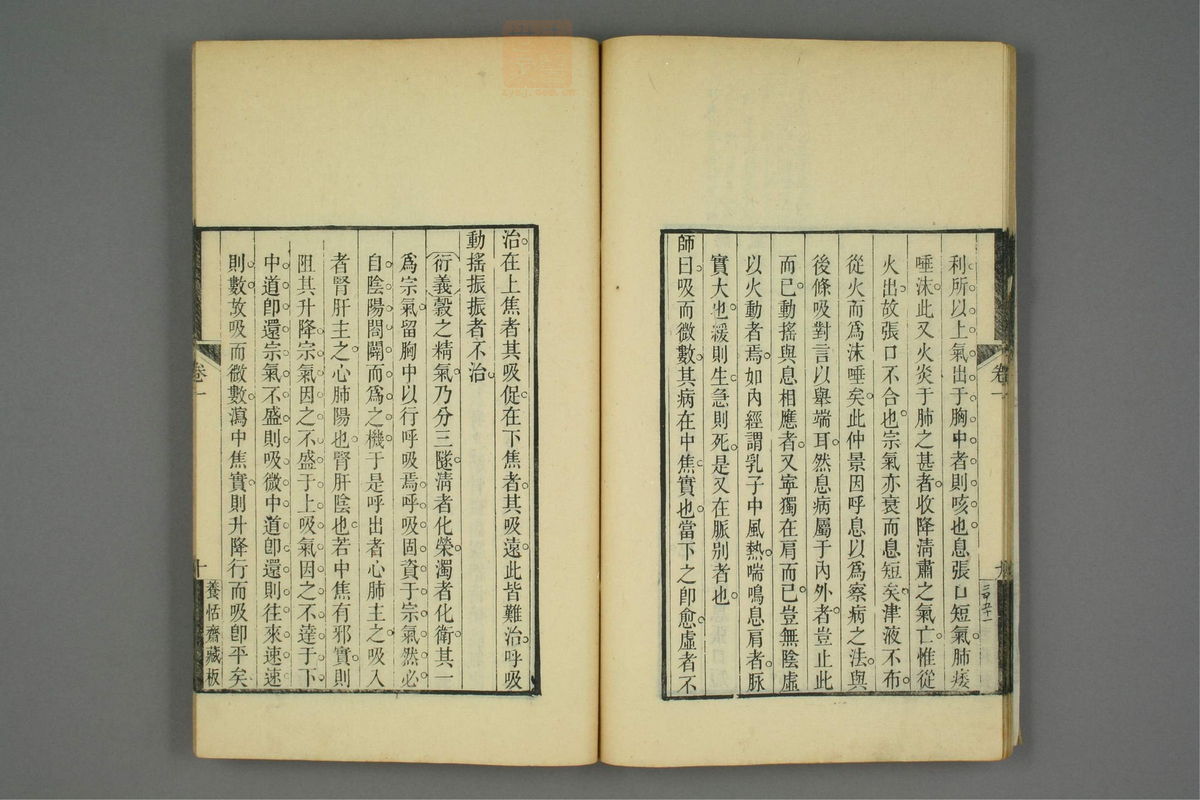 利所以上氣出于胸中者則咳也息張口短氣肺痿
唾沫此又火炎于肺之甚者收降淸肅之氣亡惟從
火出故張口不合也宗氣亦衰而息短矣津液不布
從火而爲沫唾矣此仲景因呼息以爲察病之法與
後條吸對言以舉端耳然息病屬于內外者豈止此
而已動搖與息相應者又寧獨在肩而已豈無陰虛
以火動者焉如內經謂乳子中風熱喘鳴息肩者脈
實大也緩則生急則死是又在脈別者也
師曰吸而微數其病在中焦實也當下之卽愈虛者不
卷一
治在上焦者其吸促在下焦者其吸遠此皆難治呼吸
動搖振振者不治
衍義穀之精氣乃分三隧淸者化榮濁者化衛其一
爲宗氣留胸中以行呼吸焉呼吸固資于宗氣然必
自陰陽闔闢而爲之機于是呼出者心肺主之吸入
者腎肝主之心肺陽也腎肝陰也若中焦有邪實則
阻其升降宗氣因之不盛于上吸氣因之不達于下
中道卽還宗氣不盛則吸微中道卽還則往來速速
則數故吸而微數瀉中焦實則升降行而吸卽平矣
卷一
十
養恬齋藏板